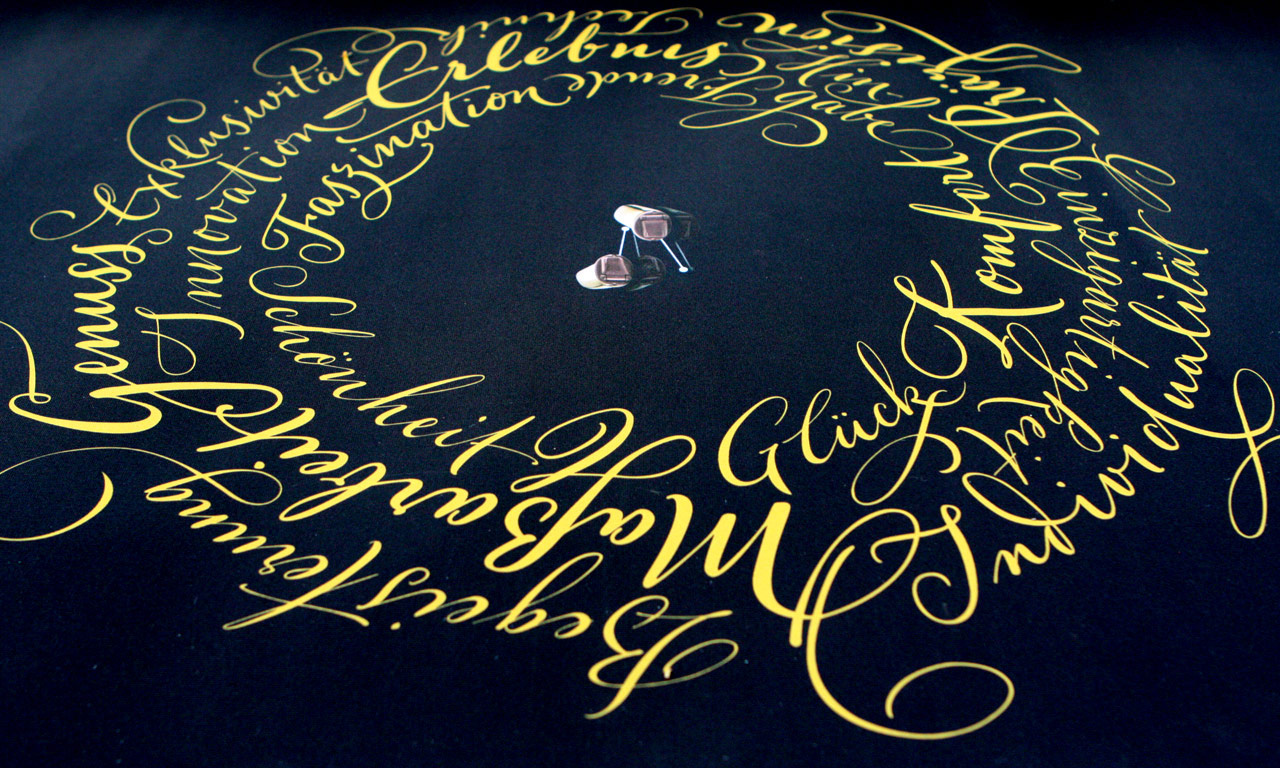 Technik
Exklusivität
Erlebnis
Präzision
Innovation
Faszination
Freude
Hingabe
Einzigartigkeit
Genuss
Schönheit
Komfort
Individualität
Glück
Maßarbeit
Begeisterung